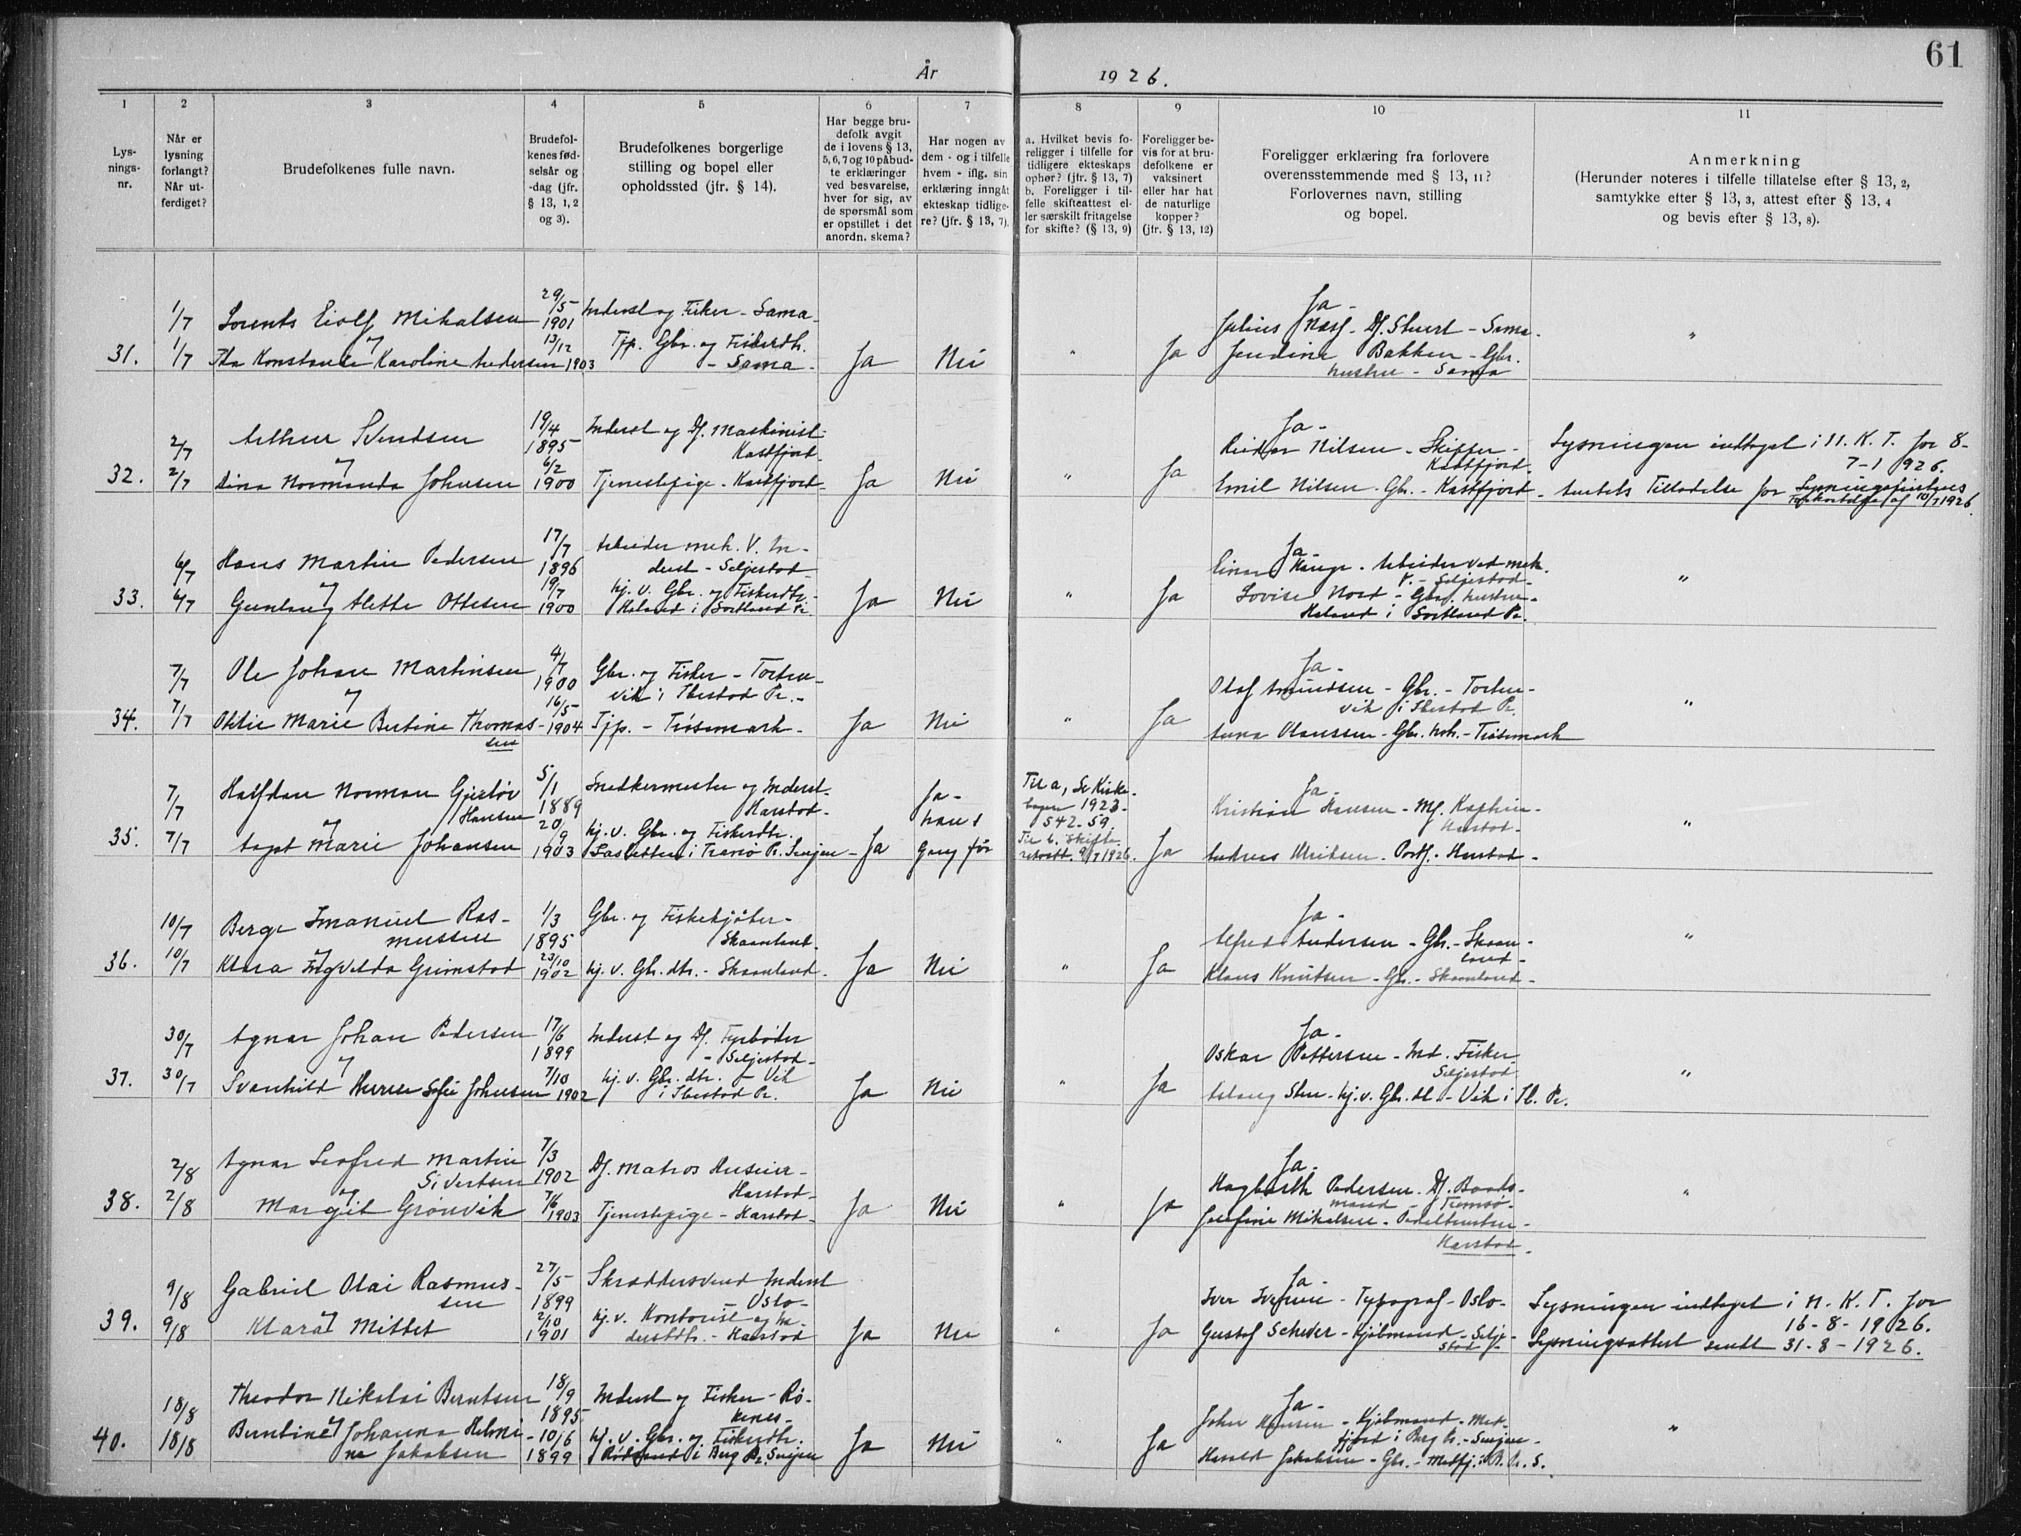 61
År 1926.
1 2 3 4 5 6 7 8 9 10 11
Lys-
nings-
nr.
Når er
lysning
forlangt?
Når ut-
ferdiget?
Brudefolkenes fulle navn.
Brudefol-
kenes fød-
selsår og
-dag (jfr.
§ 13, 1, 2
og 3).
Brudefolkenes borgerlige
stilling og bopel eller
opholdssted (jfr. § 14).
Har begge bru-
defolk avgit
de i lovens § 13,
5, 6, 7 og 10 påbud-
te erklæringer
ved besvarelse,
hver for sig, av
de spørsmål som
er opstillet i det
anordn. skema?
Har nogen av
dem - og i tilfelle
hvem - iflg. sin
erklæring inngått
ekteskap tidlige-
re? (jfr. § 13, 7).
a. Hvilket bevis fo-
religger i tilfelle for
tidligere ekteskaps
ophør? (jfr. § 13, 7)
b. Foreligger i til-
felle skifteattest el-
ler særskilt fritagelse
for skifte? (§ 13, 9)
Foreligger be-
vis for at bru-
defolkene er
vaksinert
eller har hat
de naturlige
kopper?
(jfr. § 13, 12)
Foreligger erklæring fra forlovere
overensstemmende med § 13, 11?
Forlovernes navn, stilling
og bopel.
Anmerkning
(Herunder noteres i tilfelle tillatelse efter § 13, 2,
samtykke efter § 13, 3, attest efter § 13, 4
og bevis efter § 13, 8).
31.
1/7
1/7
Lorents Eiolf Mikalsen
og
Konstanse Karoline Andersen
29/5
1901
13/12
1903
Inderst og Fisker - Sama -
Tjp. Gbr. og Fiskerdtr.
- Sama -
Ja
Nei
"
Ja
Ja -
Julius Næss - Df. Stuert - Sama -
Jendine Bakken - Gbr.
hustru - Sama
"
32.
2/7
2/7
Arthur Svendsen
og
Dina Normanda Johnsen
19/4
1895
6/2
1900
Inderst og Df. Maskinist
Kastfjord -
Tjenestepige - Kastfjord -
Ja
Nei
"
Ja
Ja -
Reidar Nilsen - Skipper -
Kastfjord -
Emil Nilsen - Gbr. - Kastfjord -
Lysningen indtaget i N. K. T. for 8-
7-1926.
Amtets Tilladelse for Lysningsfristens
Forkortelse af 10/7 1926.
33.
6/7
6/7
Hans Martin Pedersen
og
Gunlaug Alette Ottesen
17/7
1896
19/7
1900
Arbeider mek. V. In-
derst - Seljestad -
hj. v. Gbr. og Fiskerdtr.
i Sortland Pr.
Ja
Nei
"
Ja
Ja -
Einar Hauge - Arbeider ved mek.
V. - Seljestad -
Lovise Nord - Gbr. hustru -
i Sortland Pr.
"
34.
7/7
7/7
Ole Johan Martinsen
og
Oktie Marie Bertine Thomas-
sen
4/7
1900
16/5
1904
Gbr. og Fisker - Torten-
vik i Ibestad Pr. -
Tjp. - Trøsemark -
Ja
Nei
"
Ja
Ja -
Olaf Amundsen - Gbr. - Torten-
vik i Ibestad Pr.
Anna Olaussen - Gbr. hstr. - Trøsemark
"
35.
7/7
7/7
Halfdan Norman Gjerløv
Hansen
og
Aagot Marie Johansen
5/1
1889
20/9
1903
Snedkermester og Inderst -
Harstad -
hj. v. Gbr. og Fiskerdtr.
i Tranø Pr. Senjen -
Ja
Ja -
han 1
gang før
Til a, Se Kirke-
bogen 1923 -
S 42 - 59
Til b. Skifte-
retsatt. 9/7 1926.
Ja
Ja -
Kristian Hansen - Mf. Kaptein -
Harstad -
Andreas Ulriksen - Portf. - Harstad -
"
36.
10/7
10/7
Berge Imanuel Ras-
mussen
og
Klara Ingvelda Grimstad
1/3
1895
23/10
1902
Gbr. og Fiskekjøber -
Skaanland -
hj. v. Gbr. dtr. - Skaanland -
Ja
Nei
"
Ja
Ja -
Alfred Andersen - Gbr. - Skaan-
land -
Klaus Knutsen - Gbr. - Skaanland -
"
37.
30/7
30/7
Agnar Johan Pedersen
og
Svanhild Sofie Johnsen
17/6
1899
7/10
1902
Inderst og Df. Fyrbøder
- Seljestad -
hj. v. Gbr. dtr. - Vik
i Ibestad Pr.
Ja
Nei
"
Ja
Ja -
Oskar Pettersen - Ind. Fisker
Seljestad
Aslaug Sten - hj. v. Gbr. dt. - Vik i Ib. Pr.
"
38.
2/8
2/8
Agnar Leofred Martin
Sivertsen
og
Margit Grønvik
7/3
1902
7/6
1903
Df. Matros
Harstad -
Tjenestepige - Harstad -
Ja
Nei
"
Ja
Ja -
Hagbarth Pedersen - Df. Baads-
mand - Tromsø -
Josefine Mikalsen -
Harstad -
"
39.
9/8
9/8
Gabriel Olai Rasmus-
sen
og
Klara Mittet
27/5
1899
2/10
1901
Skræddersvend Inderst
- Oslo -
hj. v. Kontorist og In-
derstdtr. - Harstad
Ja
Nei
"
Ja
Ja -
Iver Iversen - Typograf - Oslo -
Gustaf Scheder - Kjøbmand - Selje-
stad -
Lysningen indtaget i N. K. T. for
16-8-1926.
Lysningsattest sendt 31-8-1926.
40.
18/8
18/8
Theodor Nikolai Berntsen
og
Berntine Johanna Helmi-
ne Jakobsen
18/9
1895
10/6
1899
Inderst og Fisker - Rø-
kenes -
hj. v. Gbr. og Fiskerdtr.
i Berg Pr. Senjen
Ja
Nei
"
Ja
Ja -
Johan Hansen - Kjøbmand - Med-
fjord i Berg Pr. - Senjen -
Harald Jakobsen - Gbr. - Medfj. i B. Pr. S.
"